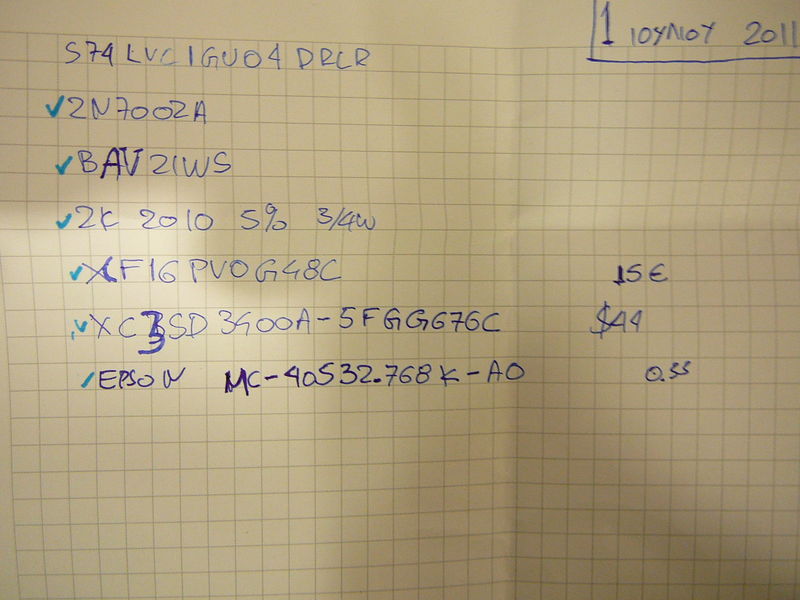 1 ΙΟΥΝΙΟΥ 2011
S74LVC1GU04DRLR
✓2N7002A
✓BAV21WS
✓2K 2010 5% 3/4W
✓XCF16PVOG48C 15€
✓XC3SD3400A-5FGG676C $44
✓EPSON MC-40532.768K-A0 0.55